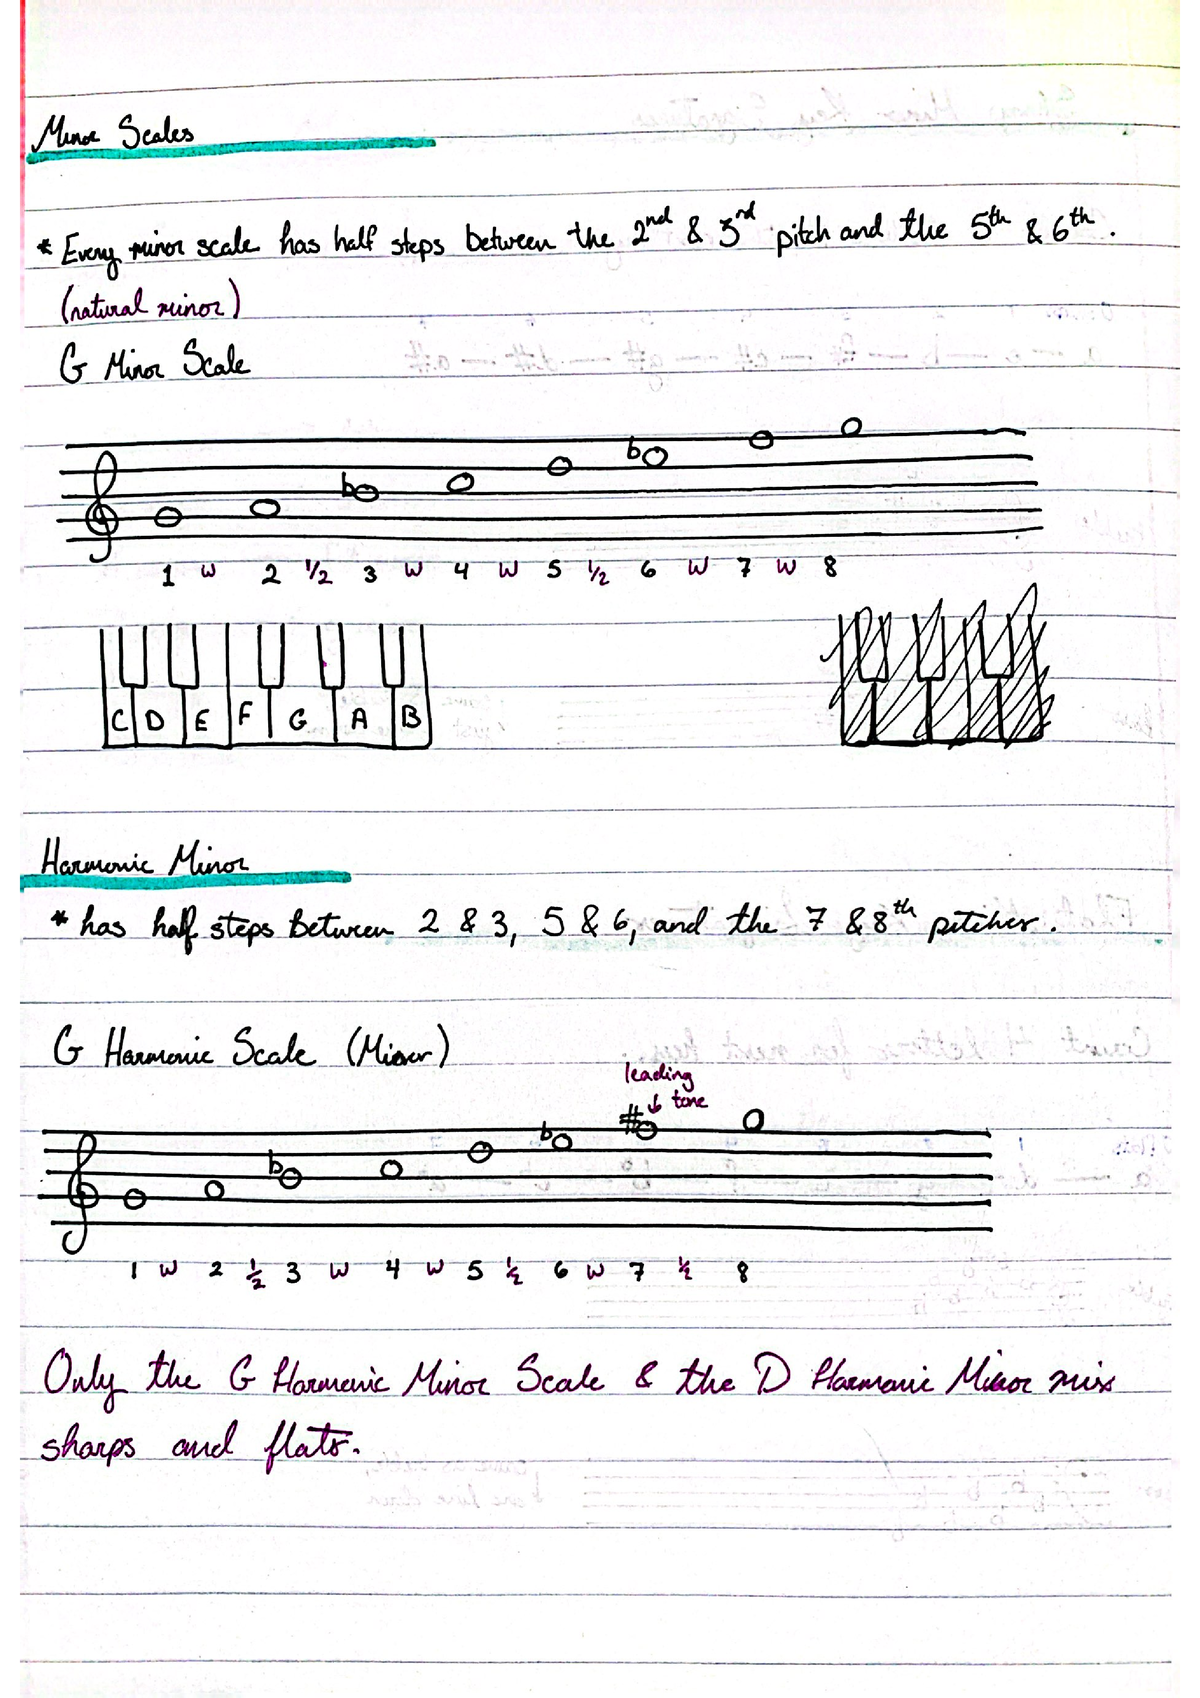 Minor Scales
* Every minor scale has half steps between the 2nd & 3rd pitch and the 5th & 6th.
(natural minor)
G Minor Scale
b b
1 W 2 1/2 3 W 4 W 5 1/2 6 W 7 W 8
C D E F G A B
Harmonic Minor
* has half steps between 2 & 3, 5 & 6, and the 7 & 8th pitches.
G Harmonic Scale (Minor)
leading
↓ tone
b b #
1 W 2 1/2 3 W 4 W 5 1/2 6 W 7 1/2 8
Only the G Harmonic Minor Scale & the D Harmonic Minor mix
sharps and flats.